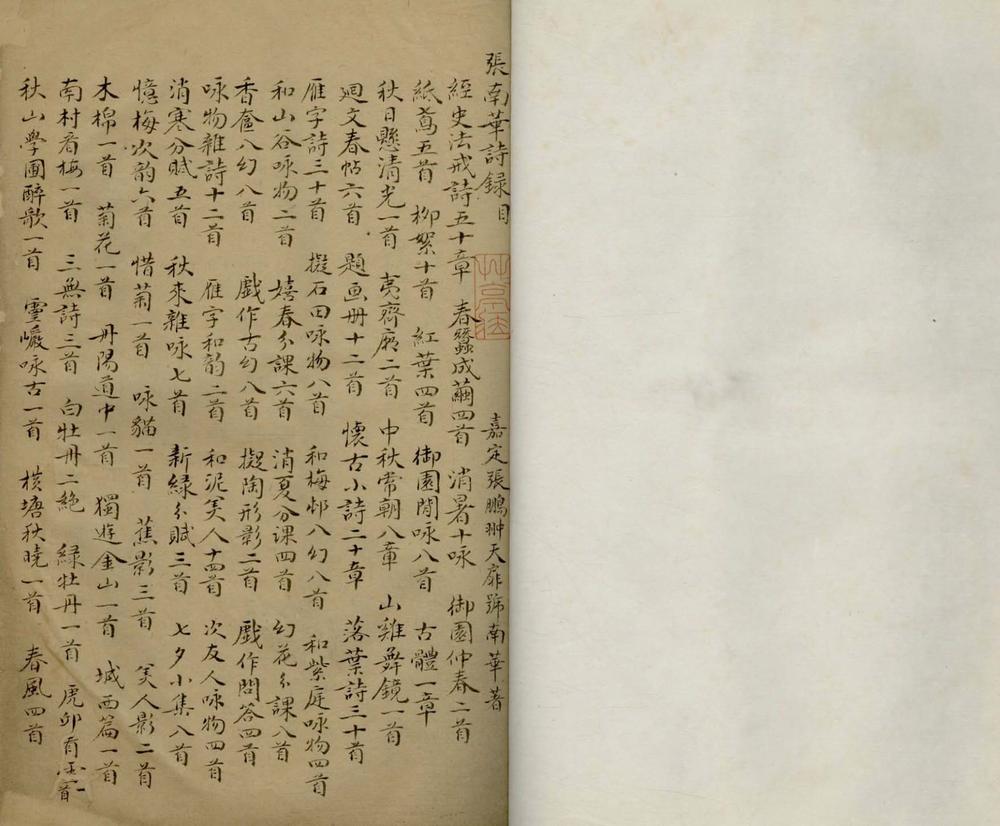 張南華詩錄目
嘉定張鵬翀天扉號南華著
經史法戒詩五十章 春蠶成繭四首 消暑十咏 御園仲春二首
紙鳶五首 柳絮十首 紅葉四首 御園閒咏八首 古體一章
秋日懸清光一首 夷齊廟二首 中秋常朝八章 山雞舞鏡一首
廻文春帖六首 題画册十二首 懷古小詩二十章 落葉詩三十首
雁字詩三十首 擬石田咏物八首 和梅邨八幻八首 和紫庭咏物四首
和山谷咏物二首 嬉春分課六首 消夏分课四首 幻花分課八首
香奩八幻八首 戲作古幻八首 擬陶形影二首 戲作問答四首
咏物雜詩十二首 雁字和韵二首 和泥美人十四首 次友人咏物四首
消寒分賦五首 秋來雜咏七首 新緑分賦三首 七夕小集八首
憶梅次韵六首 惜菊一首 咏貓一首 蕉影三首 美人影二首
木棉一首 菊花一首 丹陽道中一首 獨遊金山一首 城西篇一首
南村看梅一首 三無詩三首 白牡丹二絶 緑牡丹一首 虎卯首
秋山學圃醉歌一首 靈巗咏古一首 横塘秋曉一首 春風四首